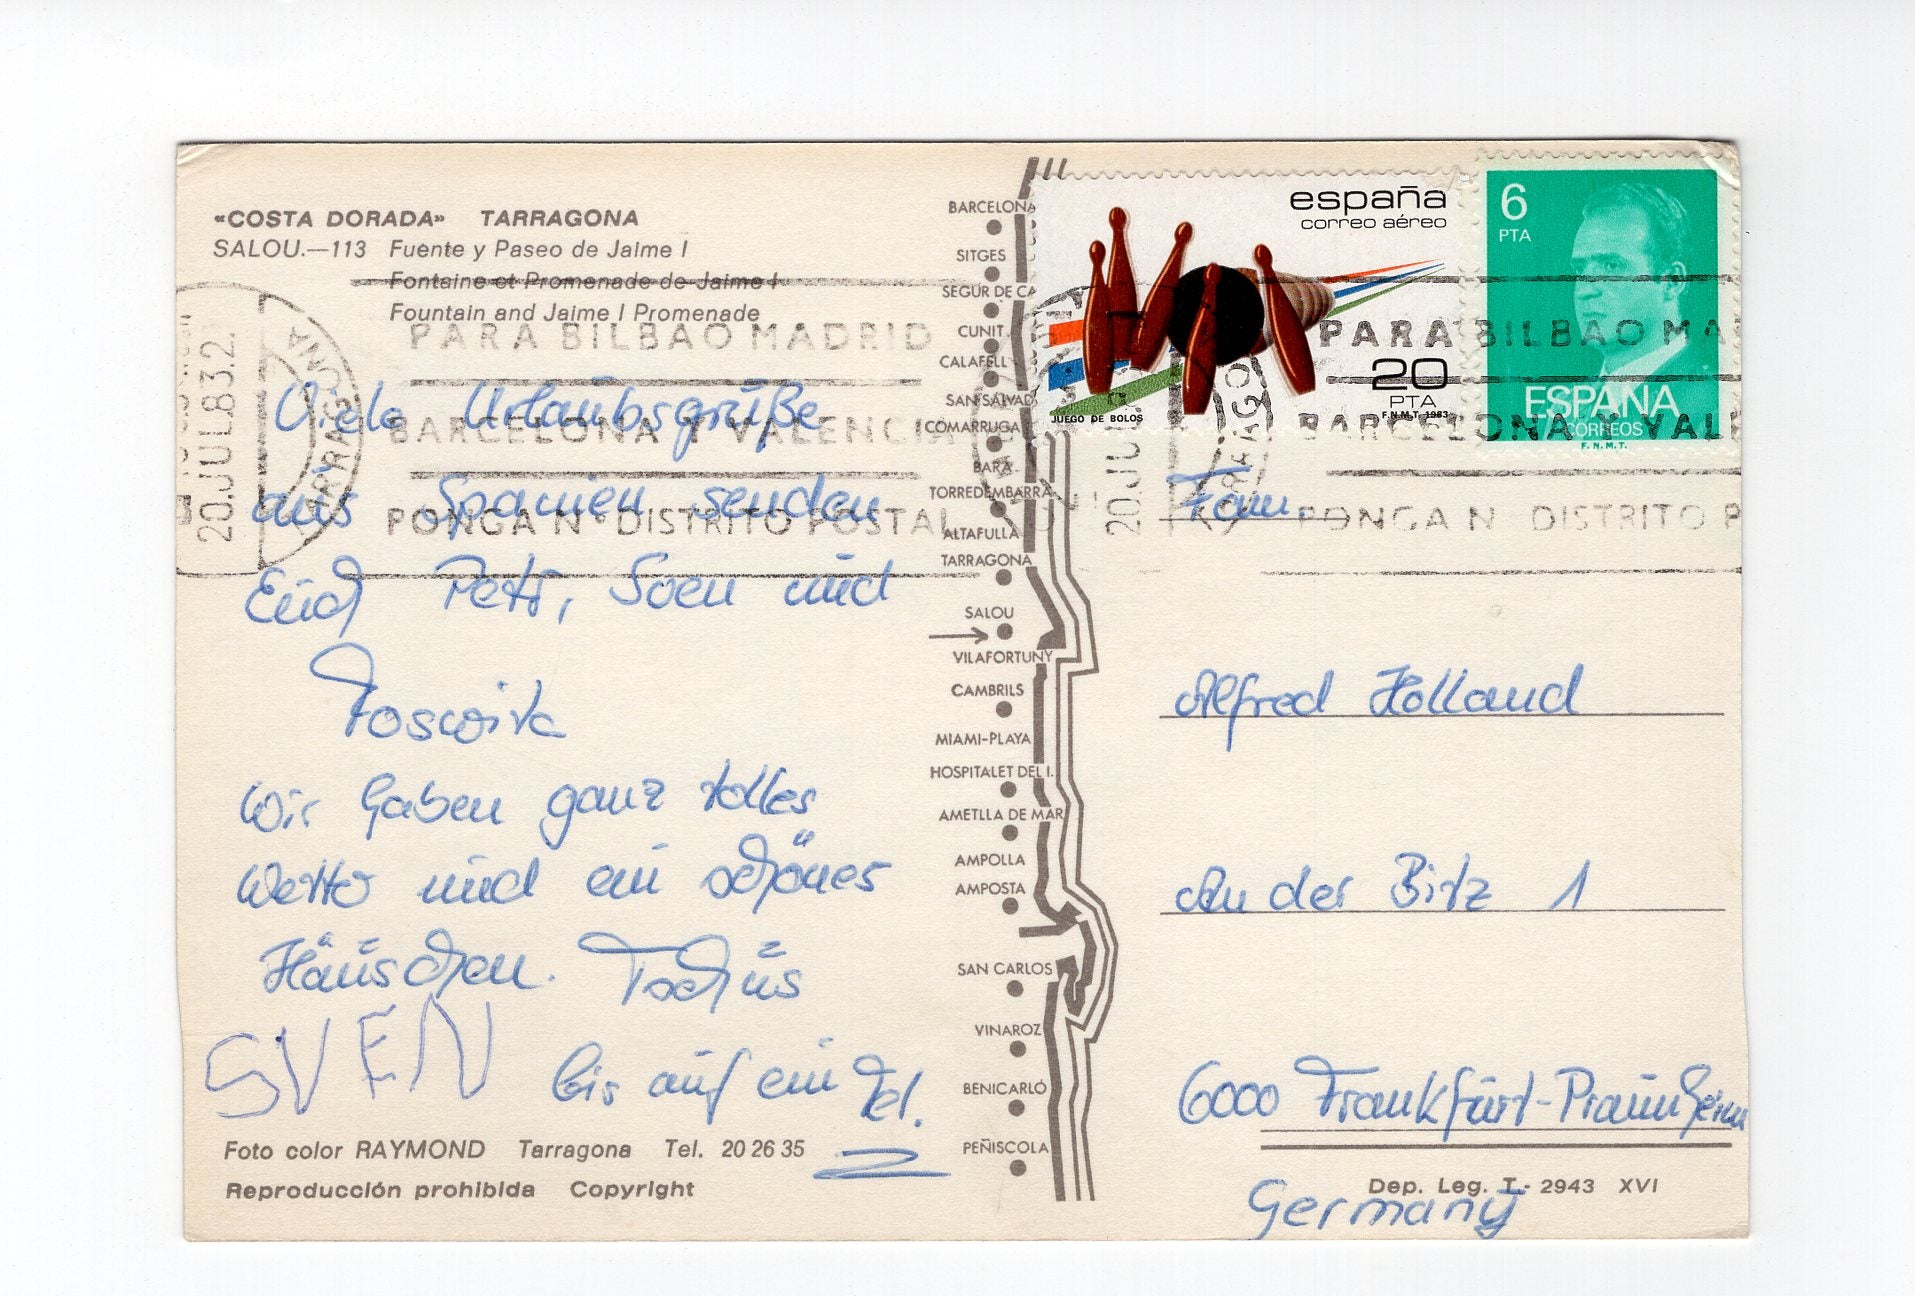 «COSTA DORADA» TARRAGONA
SALOU.—113 Fuente y Paseo de Jaime I
Fontaine et Promenade de Jaime I
Fountain and Jaime I Promenade
20.JUL.83.2
TARRAGONA
PARA BILBAO MADRID
BARCELONA Y VALENCIA
PONGA Nº DISTRITO POSTAL
Viele Urlaubsgrüße
aus Spanien senden
Euch Peter, Sven und
Roswita
Wir haben ganz tolles
Wetter und ein schönes
Häuschen. Tschüs
SVEN
bis auf ein Tel.
Foto color RAYMOND Tarragona Tel. 20 26 35
Reproducción prohibida Copyright
BARCELONA
SITGES
SEGUR DE CA
CUNIT
CALAFELL
SAN SALVAD
COMARRUGA
BARA
TORREDEMBARRA
ALTAFULLA
TARRAGONA
SALOU
VILAFORTUNY
CAMBRILS
MIAMI-PLAYA
HOSPITALET DEL I.
AMETLLA DE MAR
AMPOLLA
AMPOSTA
SAN CARLOS
VINAROZ
BENICARLÓ
PEÑISCOLA
españa
correo aéreo
20
PTA
F.N.M.T. 1983
JUEGO DE BOLOS
6
PTA
ESPAÑA
CORREOS
F.N.M.T.
20.JU
PARA BILBAO MA
BARCELONA Y VAL
PONGA N DISTRITO P
Fam.
Alfred Holland
An der Bitz 1
6000 Frankfurt-Praunheim
Dep. Leg. T.- 2943 XVI
Germany